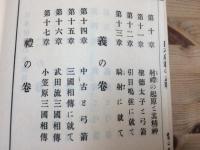 第十章　射禮の起原と其精神
第十一章　聖德太子と弓箭
第十二章　引目鳴弦に就て
第十三章　騎射に就て
義の卷
第十四章　中古と弓箭
第十五章　三國相傳に就て
第十六章　武田流三國相傳
第十七章　小笠原三國相傳
禮の卷